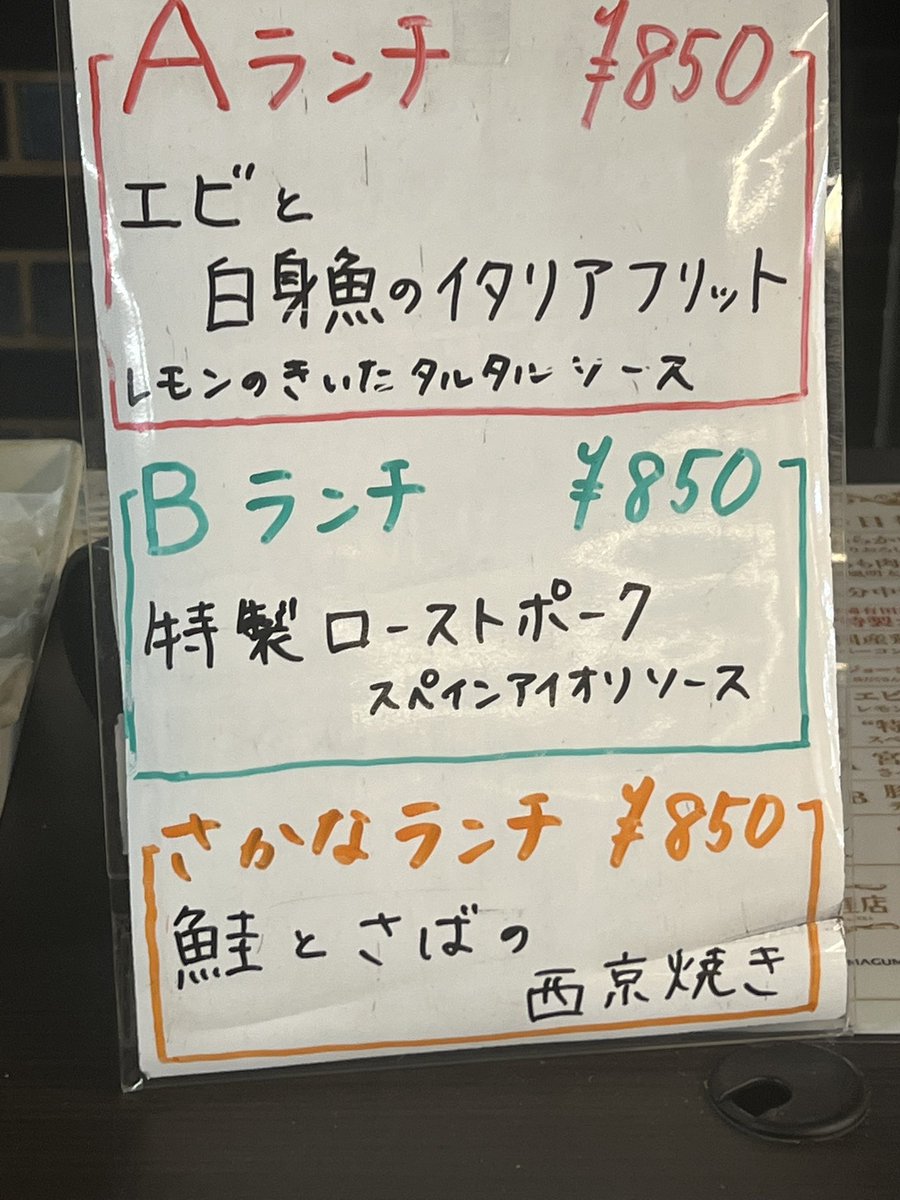 Aランチ ¥850
エビと
白身魚のイタリアフリット
レモンのきいたタルタルソース
Bランチ ¥850
特製ローストポーク
スペインアイオリソース
さかなランチ ¥850
鮭とさばの
西京焼き